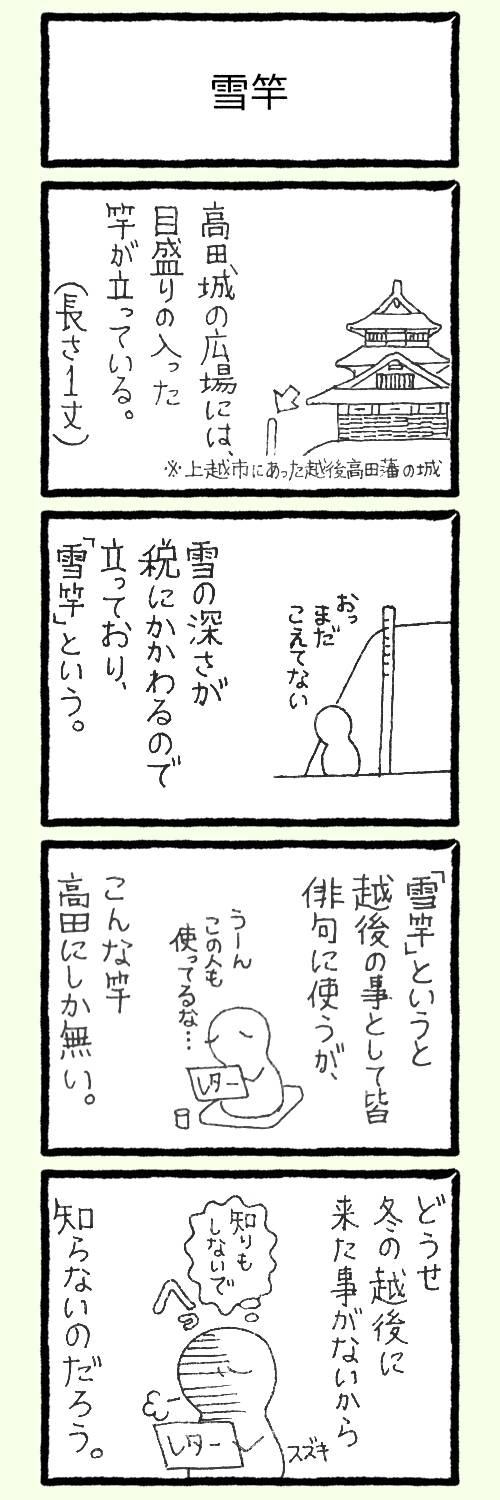 雪竿
高田城の広場には、
目盛りの入った
竿が立っている。
(長さ1丈)
※上越市にあった越後高田藩の城
おっ
まだ
こえてない
雪の深さが
税にかかわるので
立っており、
「雪竿」という。
「雪竿」というと
越後の事として皆
俳句に使うが、
うーん
この人も
使ってるな…
レター
こんな竿
高田にしか無い。
どうせ
冬の越後に
来た事がないから
知りも
しないで
へっ
レター
スズキ
知らないのだろう。